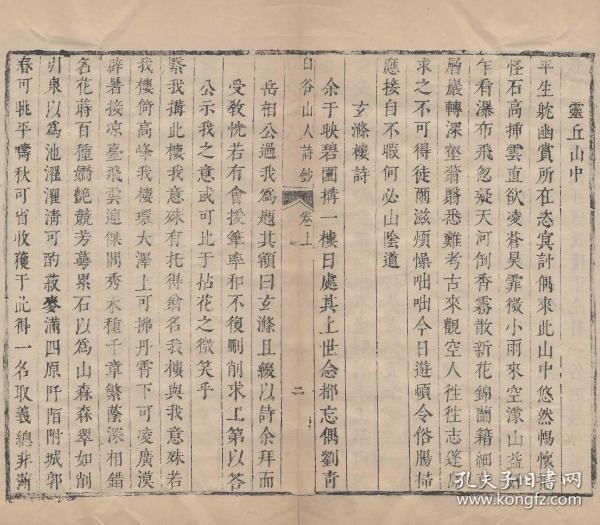 靈丘山中
平生躭幽賞所在恣㝠討偶來此山中悠然暢懷
怪石高揷雲直欲凌蒼昊霏微小雨來空濛山益
乍看瀑布飛忽疑天河倒香霧散新花錦蘭籍細
層巖轉深壑翁翳悉難考古來觀空人徃徃志蓬
求之不可得徒爾滋煩懆咄咄今日遊頓令俗腸掃
應接自不暇何必山陰道
玄滌樓詩
余于映碧園搆一樓日處其上世念都忘偶劉青
白谷山人詩鈔 卷上 二
岳相公過我為題其額曰玄滌且綴以詩余拜而
受敎恍若有會援筆率和不復刪削求工第以答
公示我之意或可比于拈花之微笑乎
緊我搆此樓我意殊有托得翁名我樓與我意殊若
我樓倚高峰我樓環大澤上可拂丹霄下可凌廣漠
辟暑接凉臺飛雲連傑閣秀木種千章繁蔭深相錯
名花蒔百種嬌艶競芳萼累石以為山森森翠如削
引泉以為池濯濯淸可酌菽麥滿四原阡陌附城郭
春可眺平疇秋可省收穫于此得一名取義總非
孔夫子旧书网
kongfz.com